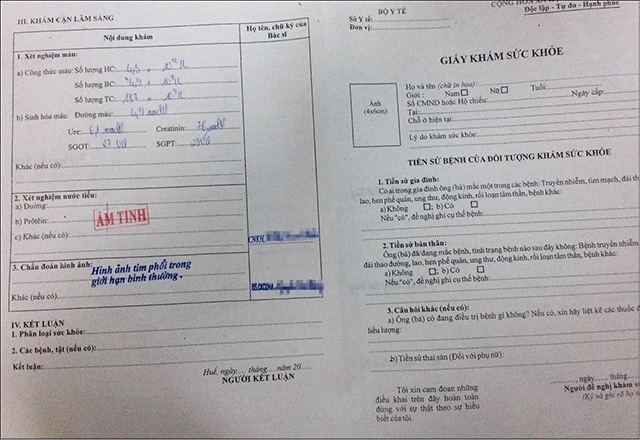 III. KHÁM CẬN LÂM SÀNG
Nội dung khám
Họ tên, chữ ký của
Bác sĩ
1. Xét nghiệm máu:
a) Công thức máu: Số lượng HC:
Số lượng BC:
Số lượng TC: 187
b) Sinh hóa máu: Đường máu:
Ure: Creatinin:
SGOT: SGPT:
Khác (nếu có):
2. Xét nghiệm nước tiểu:
a) Đường:
b) Prôtêin:
c) Khác (nếu có):
ÂM TINH
CNXH.
3. Chẩn đoán hình ảnh:
Hình ảnh tim phổi trong
giới hạn bình thường.
Khác (nếu có)
IV. KẾT LUẬN
1. Phân loại sức khỏe:
2. Các bệnh, tật (nếu có):
Kết luận:
Huế, ngày.....tháng.....năm 20....
NGƯỜI KẾT LUẬN
BỘ Y TẾ
Sở Y tế:
Đơn vị:
Độc lập - Tự do - Hạnh phúc
GIẤY KHÁM SỨC KHỎE
Ảnh
(4x6cm)
Họ và tên (chữ in hoa):
Giới: Nam Nữ Tuổi:
Số CMND hoặc Hộ chiếu: Ngày cấp:
Tại:
Chỗ ở hiện tại:
Lý do khám sức khỏe:
TIỀN SỬ BỆNH CỦA ĐỐI TƯỢNG KHÁM SỨC KHỎE
1. Tiền sử gia đình:
Có ai trong gia đình ông (bà) mắc một trong các bệnh: Truyền nhiễm, tim mạch, đái th
lao, hen phế quản, ung thư, động kinh, rối loạn tâm thần, bệnh khác:
a) Không ; b) Có
Nếu "có", đề nghị ghi cụ thể bệnh:
2. Tiền sử bản thân:
Ông (bà) đã/đang mắc bệnh, tình trạng bệnh nào sau đây không: Bệnh truyền nhiễm
đái tháo đường, lao, hen phế quản, ung thư, động kinh, rối loạn tâm thần, bệnh khác:
a) Không ; b) Có
Nếu "có", đề nghị ghi cụ thể bệnh:
3. Câu hỏi khác (nếu có):
a) Ông (bà) có đang điều trị bệnh gì không? Nếu có, xin hãy liệt kê các thuốc đ
liều lượng:
b) Tiền sử thai sản (Đối với phụ nữ):
Tôi xin cam đoan những
điều khai trên đây hoàn toàn
đúng với sự thật theo sự hiểu
biết của tôi.
ngày.....tháng
Người đề nghị khám s
(Ký và ghi rõ họ t